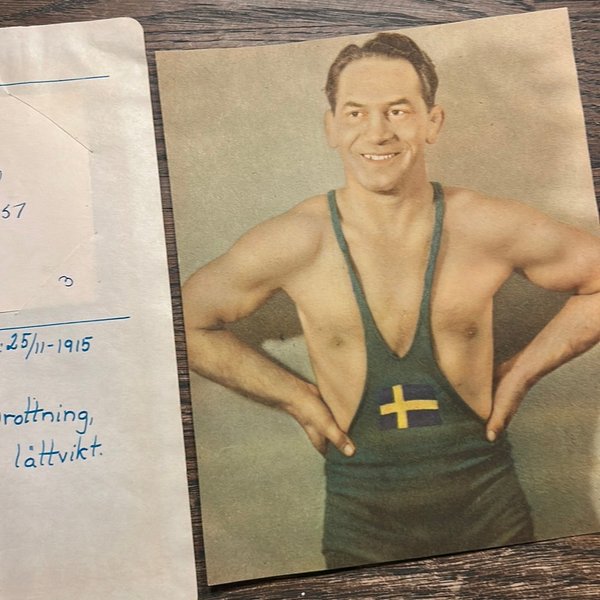 57
3
:25/11-1915
rottning,
lättvikt.